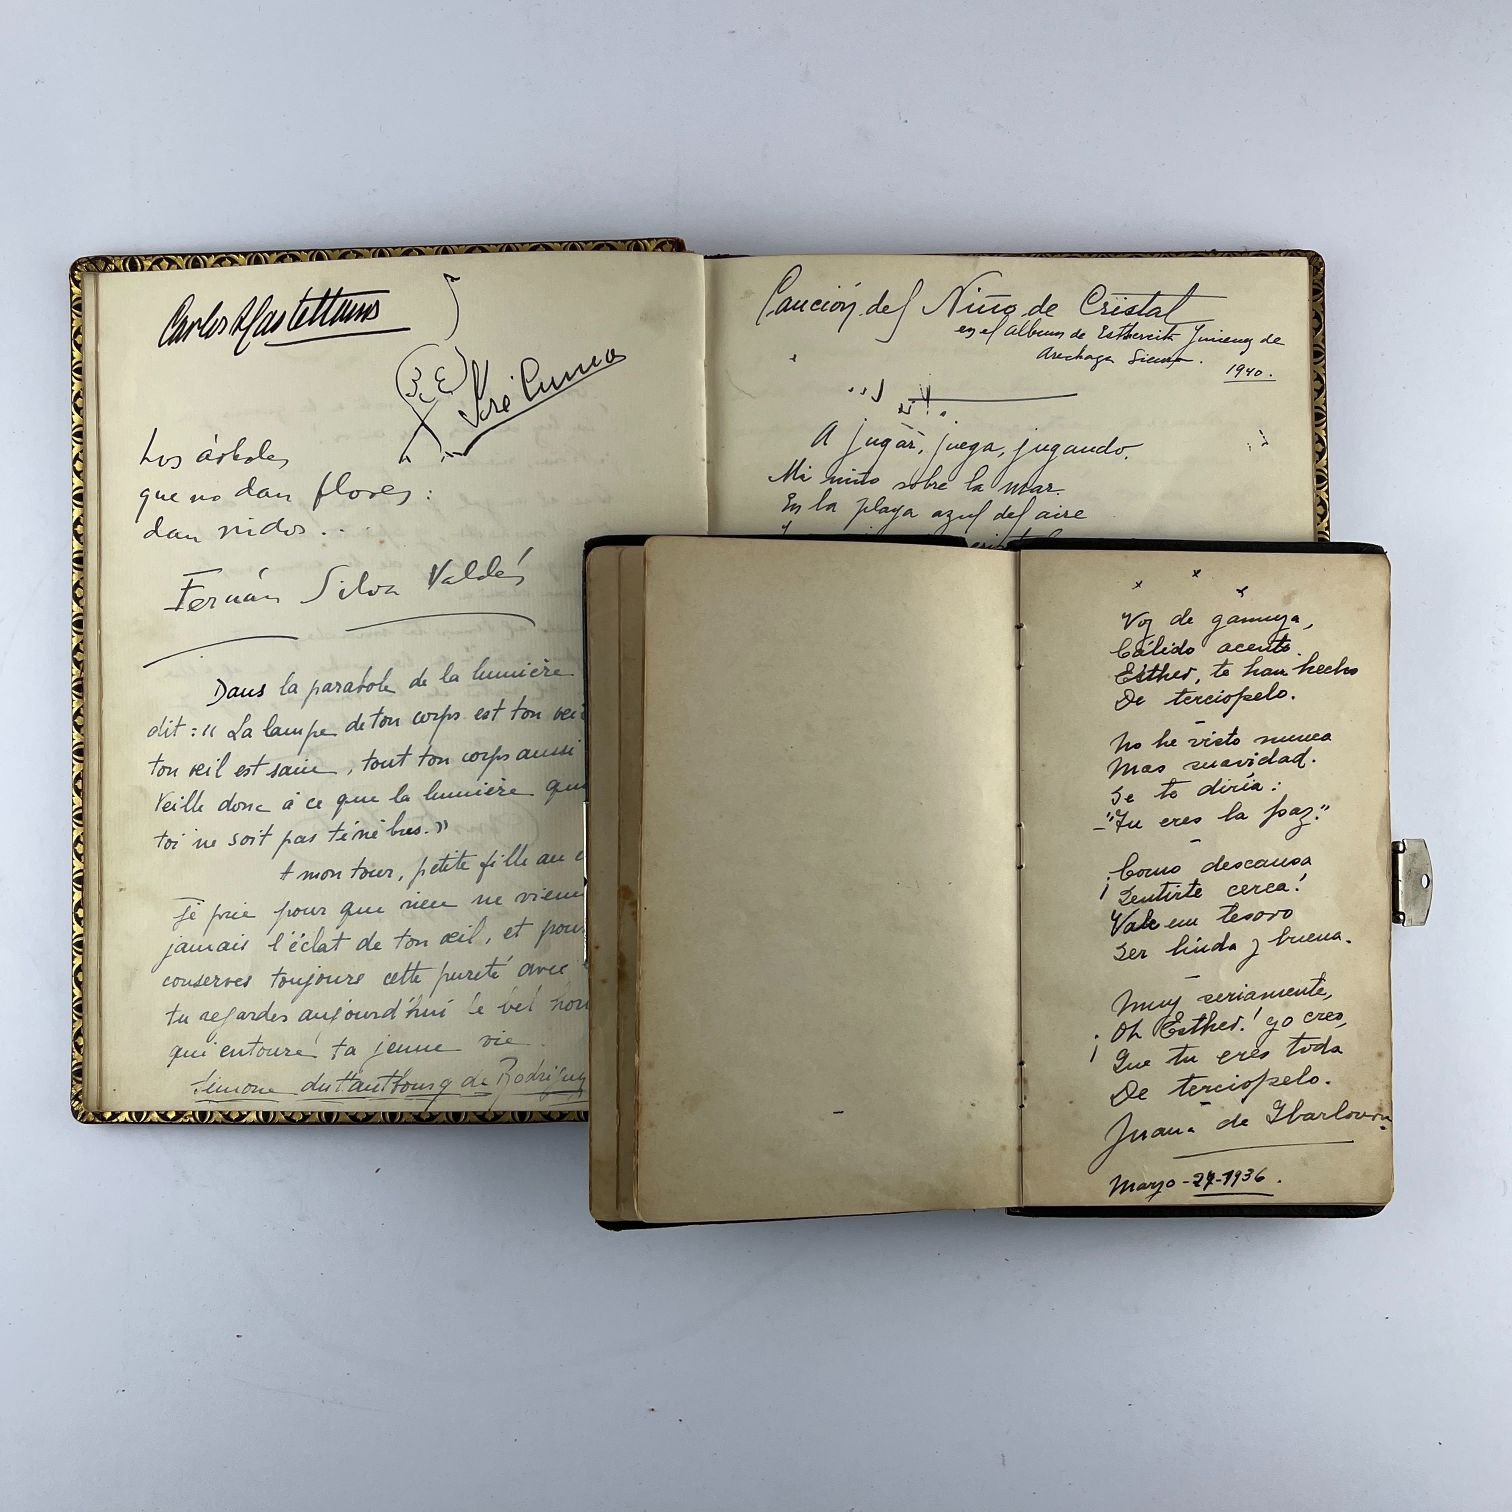 Carlos A Castellanos
José Cuneo
Los árboles
que no dan flores:
dan nidos...
Fernán Silva Valdés
Dans la parabole de la lumière
dit: "La lampe de ton corps est ton
ton œil est sain, tout ton corps aussi
Veille donc à ce que la lumière
toi ne soit pas ténèbres."
A mon tour, petite fille au
je prie pour que rien ne
jamais l'éclat de ton œil, et
conserves toujours cette pureté avec
tu regardes aujourd'hui le bel
qui entoure ta jeune vie.
Simone du Hautbourg de Rodríguez
Canción del Niño de Cristal
en el álbum de Esthercita Jimenez de
Arechaga Sienra.
1940.
A jugar, juega, jugando.
Mi niño sobre la mar.
En la playa azul del aire
x x x
Voz de gamuza,
Cálido acento.
Esther, te han hecho
De terciopelo.
No he visto nunca
Mas suavidad.
Se te diría:
–"Tu eres la paz."
Como descansa
¡Sentirte cerca!
Vale un tesoro
Ser linda y buena.
Muy seriamente,
¡Oh Esther! yo creo,
¡Que tu eres toda
De terciopelo.
Juana de Ibarbourou
Marzo-24-1936.